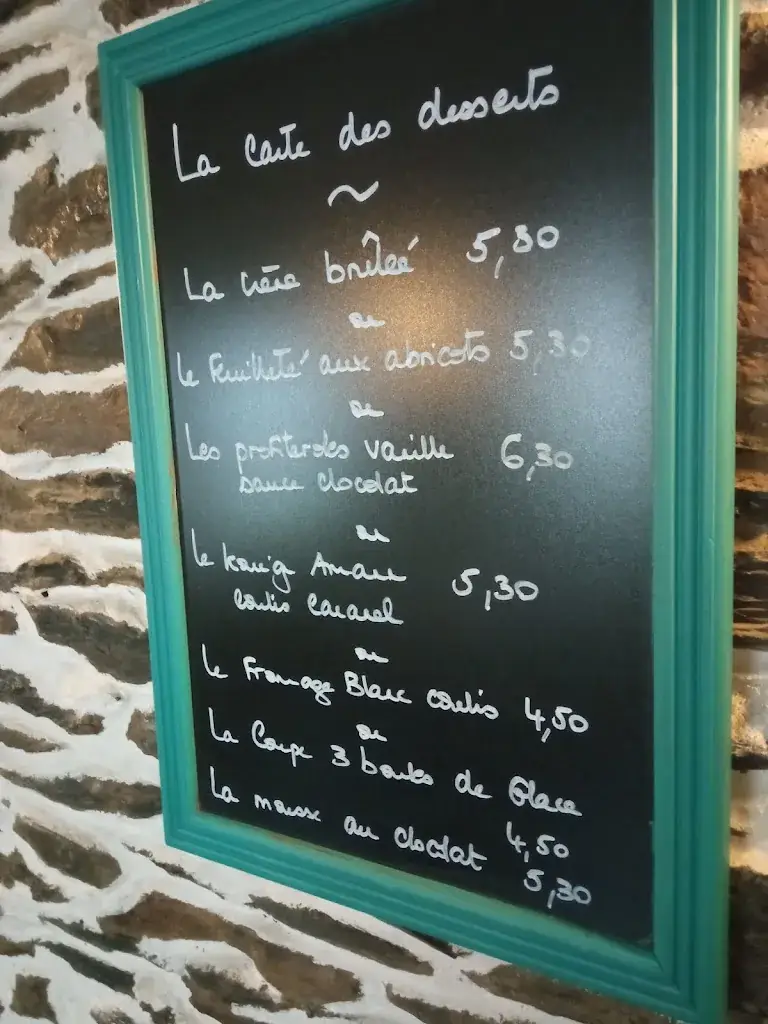 La Carte des desserts
~
La crème brûlée 5,80
ou
Le Feuilleté aux abricots 5,30
ou
Les profiteroles vanille 6,30
sauce chocolat
ou
Le kouign Amann 5,30
coulis Caramel
ou
Le Fromage Blanc coulis 4,50
ou
La Coupe 3 boules de Glace
4,50
La mousse au chocolat 5,30